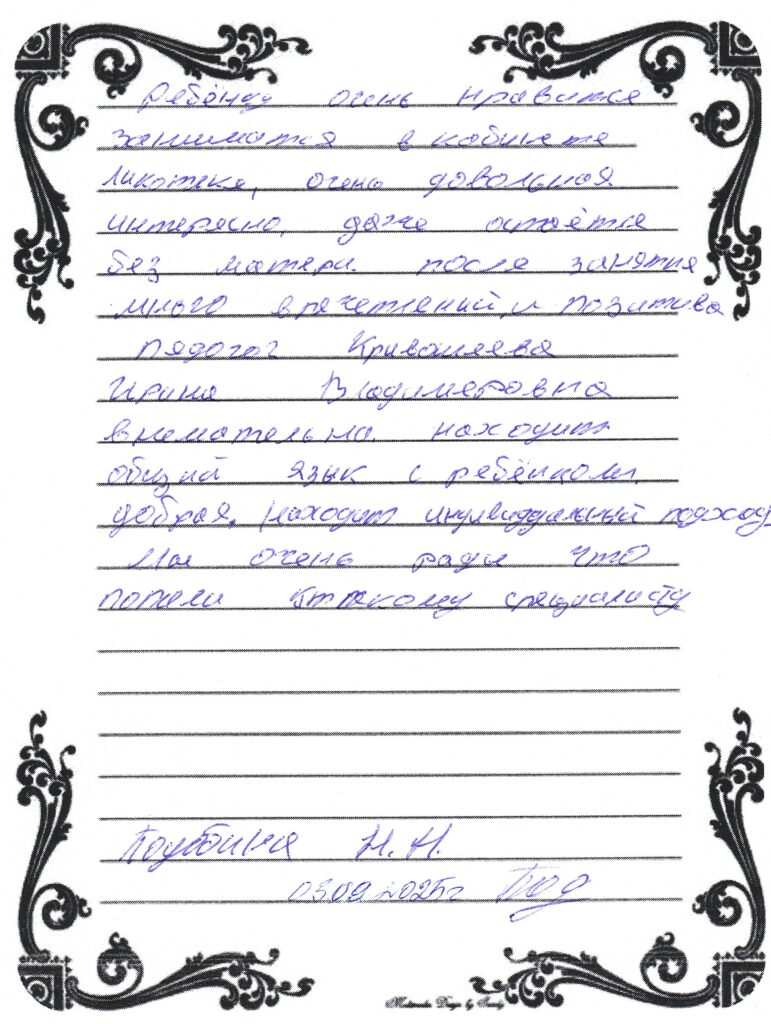 Ребёнку очень нравится
заниматся в кабинете
ликотеке, очень довольная
интересно, даже остаётся
без матери. после занятия
много впечетлений, и позитива
Педогог Кривошеева
Ирина Владимеровна
внемательна находит
общий язык с ребёнком.
добрая. находит индивиддальный подход
Мы очень рады что
попали к такому специалисту
Н. Н.
03.09.2025г
by